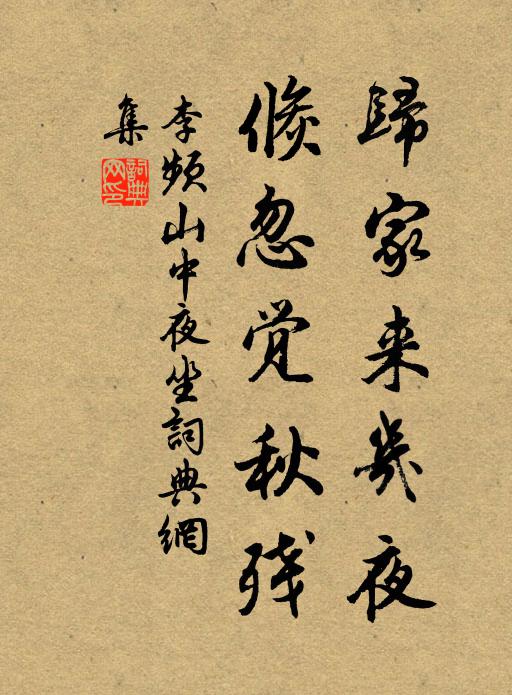 歸家來幾夜
倏忽覺秋殘
李頻山中夜坐詞典網
集
詞典
网印